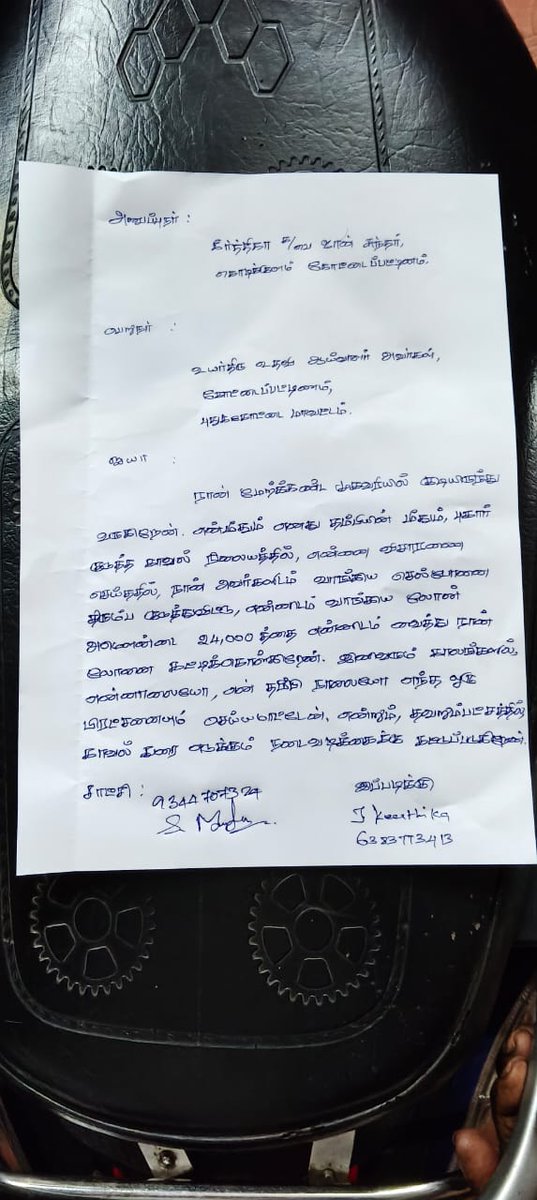 அனுப்புநர் :
கீர்த்திகா க/பெ ஜான் சுந்தர்,
கொடிக்குளம் கோட்டைப்பட்டினம்.
பெறுநர் :
உயர்திரு உதவி ஆய்வாளர் அவர்கள்,
கோட்டைப்பட்டிணம்,
புதுக்கோட்டை மாவட்டம்.
ஐயா :
நான் மேற்கண்ட முகவரியில் குடியிருந்து
வருகிறேன். என்மீதும் எனது தம்பியின் மீதும், புகார்
கொடுத்த காவல் நிலையத்தில், என்னை விசாரணை
செய்ததில், நான் அவர்களிடம் வாங்கிய செல்போனை
திரும்ப கொடுத்துவிட்டு, என்னிடம் வாங்கிய லோன்
24,000 த்தை என்னிடம் வைத்து நான்
லோனை கட்டிக்கொள்கிறேன். இனிவரும் காலங்களில்
என்னாலையோ, என் தம்பி நாலையோ எந்த ஒரு
பிரட்சனையும் செய்யமாட்டேன். என்றும், தவறும்பட்சத்தில்
காவல் துறை எடுக்கும் நடைவடிக்கைக்கு கட்டுப்படுகிறேன்.
சாட்சி : 9344707324
இப்படிக்கு
J Keerthika
638373413